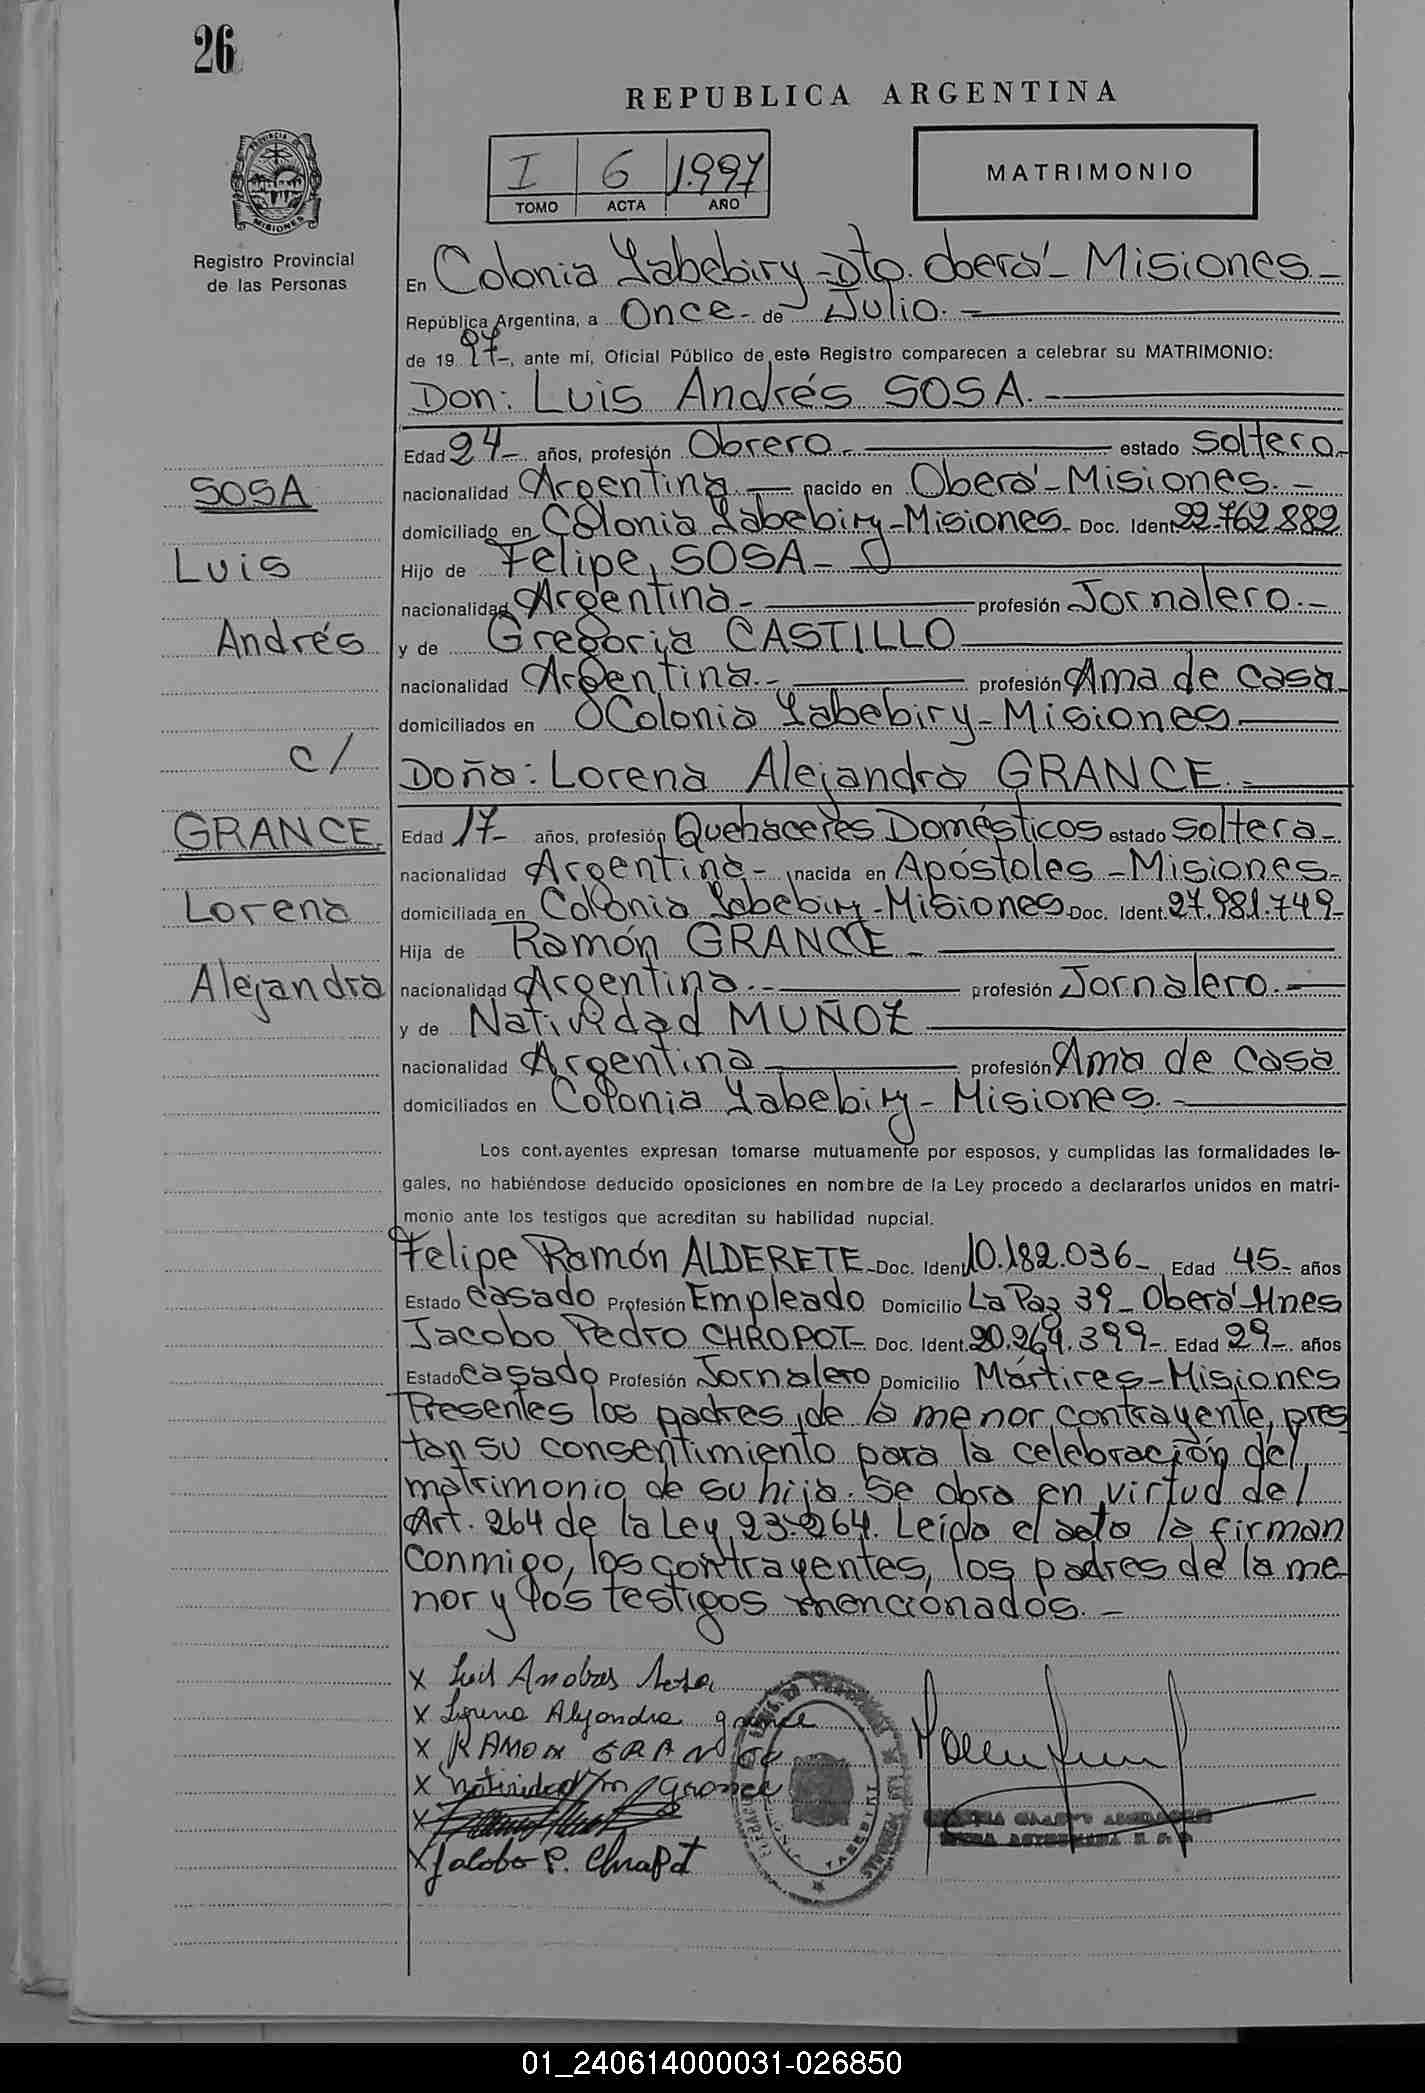 26
REPUBLICA ARGENTINA
I 6 1.997
TOMO ACTA AÑO
MATRIMONIO
PROVINCIA
MISIONES
Registro Provincial
de las Personas
En Colonia Yabebiry-Dto. Oberá- Misiones-
República Argentina, a Once- de Julio.-
de 19 97-, ante mi, Oficial Público de este Registro comparecen a celebrar su MATRIMONIO:
Don: Luis Andrés SOSA.-
Edad 24- años, profesión Obrero.- estado Soltero-
SOSA
nacionalidad Argentina.- nacido en Oberá-Misiones.-
domiciliado en Colonia Yabebiry-Misiones- Doc. Ident. 22.762.882
Luis
Hijo de Felipe SOSA-
nacionalidad Argentina.- profesión Jornalero.-
Andrés
y de Gregoria CASTILLO
nacionalidad Argentina.- profesión Ama de casa-
domiciliados en Colonia Yabebiry-Misiones
c/
Doña: Lorena Alejandra GRANCE.-
GRANCE
Edad 17- años, profesión Quehaceres Domésticos estado Soltera-
nacionalidad Argentina- nacida en Apóstoles-Misiones-
Lorena
domiciliada en Colonia Yabebiry-Misiones Doc. Ident. 27.981.749-
Hija de Ramón GRANCE-
Alejandra
nacionalidad Argentina.- profesión Jornalero.-
y de Natividad MUÑOZ
nacionalidad Argentina profesión Ama de casa
domiciliados en Colonia Yabebiry- Misiones.-
Los cont.ayentes expresan tomarse mutuamente por esposos, y cumplidas las formalidades le-
gales, no habiéndose deducido oposiciones en nombre de la Ley procedo a declararlos unidos en matri-
monio ante los testigos que acreditan su habilidad nupcial.
Felipe Ramón ALDERETE- Doc. Ident. 10.182.036- Edad 45- años
Estado Casado Profesión Empleado Domicilio La Paz 39- Oberá-Mnes
Jacobo Pedro CHROPOT- Doc. Ident. 20.264.399- Edad 29- años
Estado Casado Profesión Jornalero Domicilio Mártires-Misiones
Presentes los padres de la menor contrayente, pres
tan su consentimiento para la celebración del
matrimonio de su hija. Se obra en virtud del
Art. 264 de la Ley 23.264. Leída el acta la firman
conmigo, los contrayentes, los padres de la me-
nor y los testigos mencionados.-
X Luis Andres Sosa
X Lorena Alejandra grance
X RAMON GRANCE
X natividad m grance
X
X Jacobo P. Chropot
01_240614000031-026850